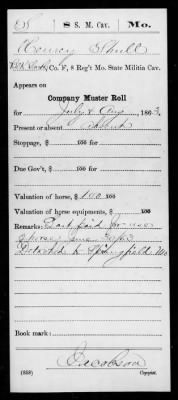 S | 8 S. M. Cav. | Mo.
Henry Shull
Co. F, 8 Reg't Mo. State Militia Cav.
Appears on
Company Muster Roll
for July & Aug, 1863.
Present or absent Absent
Stoppage, $ 100 for
Due Gov't, $ 100
Valuation of horse, $ 100 100
Valuation of horse equipments, $ 100
Remarks: Last paid for use
of horse June 30/63
Detached to Springfield Mo
Book mark:
Jacobson
(358) Copyist.